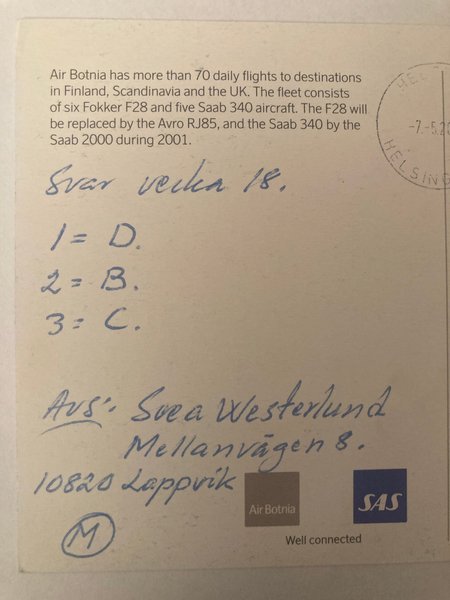 Air Botnia has more than 70 daily flights to destinations
in Finland, Scandinavia and the UK. The fleet consists
of six Fokker F28 and five Saab 340 aircraft. The F28 will
be replaced by the Avro RJ85, and the Saab 340 by the
Saab 2000 during 2001.
-7.-5.20
HELSING
Svar vecka 18.
1 = D.
2 = B.
3 = C.
Avs:. Svea Westerlund
Mellanvägen 8.
10820 Lappvik
Air Botnia
SAS
Well connected
M